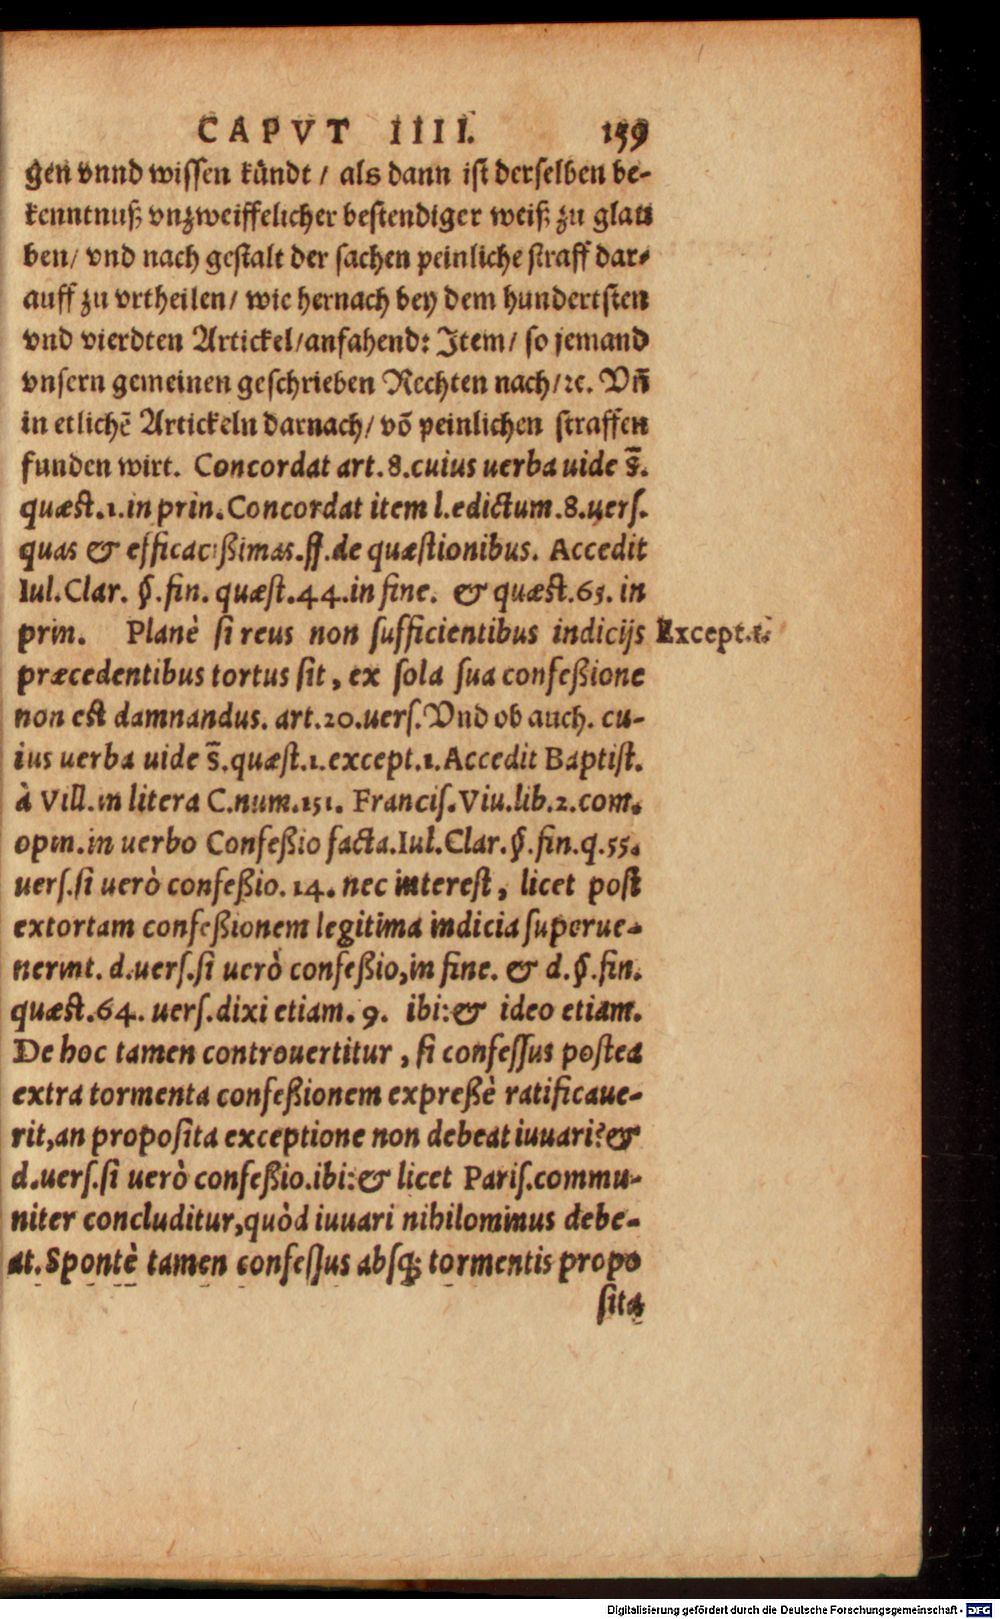 CAPVT IIII. 159
gen vnnd wissen kündt / als dann ist derselben be-
kenntnuß vnzweiffelicher bestendiger weiß zu glau
ben/ vnd nach gestalt der sachen peinliche straff dar-
auff zu vrtheilen/ wie hernach bey dem hundertsten
vnd vierdten Artickel/anfahend: Item/ so jemand
vnsern gemeinen geschrieben Rechten nach/ꝛc. Vn̄
in etlichē Artickeln darnach/ võ peinlichen straffen
funden wirt. Concordat art. 8. cuius uerba uide s̄.
quæst.1. in prin. Concordat item l. edictum. 8. uers.
quas & efficacißimas. ff. de quæstionibus. Accedit
Iul. Clar. §. fin. quæst. 44. in fine. & quæst. 65. in
prin. Planè si reus non sufficientibus indicijs Except.1.
præcedentibus tortus sit, ex sola sua confeßione
non est damnandus. art. 20. uers. Vnd ob auch. cu-
ius uerba uide s̄. quæst. 1. except. 1. Accedit Baptist.
à Vill. in litera C. num. 151. Francis. Viu. lib. 2. com.
opin. in uerbo Confeßio facta. Iul. Clar. §. fin. q. 55.
uers. si uerò confeßio. 14. nec interest, licet post
extortam confeßionem legitima indicia superue-
nerint. d. uers. si uerò confeßio, in fine. & d. §. fin.
quæst. 64. uers. dixi etiam. 9. ibi: & ideo etiam.
De hoc tamen controuertitur, si confessus postea
extra tormenta confeßionem expreßè ratificaue-
rit, an proposita exceptione non debeat iuuari? &
d. uers. si uerò confeßio. ibi: & licet Paris. commu-
niter concluditur, quòd iuuari nihilominus debe-
at. Spontè tamen confessus absq; tormentis propo
sita
Digitalisierung gefördert durch die Deutsche Forschungsgemeinschaft - DFG